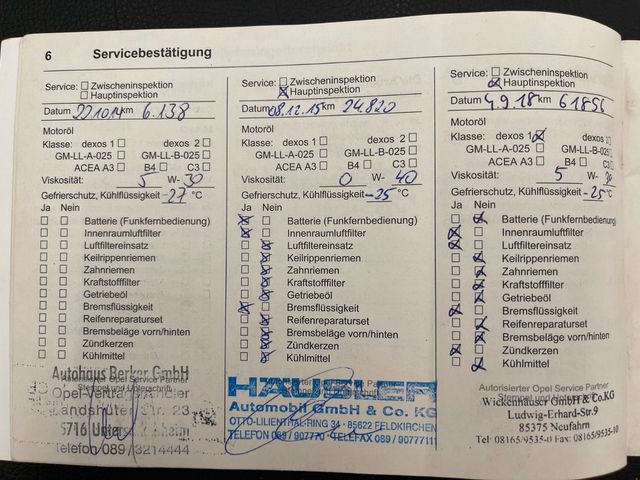 6 Servicebestätigung
Service: Zwischeninspektion
Hauptinspektion
Datum 22.10.14 km 6.138
Motoröl
Klasse: dexos 1 dexos 2
GM-LL-A-025 GM-LL-B-025
ACEA A3 B4 C3
Viskosität: 5 W- 30
Gefrierschutz, Kühlflüssigkeit -27 °C
Ja Nein
Batterie (Funkfernbedienung)
Innenraumluftfilter
Luftfiltereinsatz
Keilrippenriemen
Zahnriemen
Kraftstofffilter
Getriebeöl
Bremsflüssigkeit
Reifenreparaturset
Bremsbeläge vorn/hinten
Zündkerzen
Kühlmittel
Autorisierter Opel Service Partner
Stempel und Unterschrift
Autohaus Berker GmbH
Opel-Vertragshändler
Landshuter Str. 23
Telefon 089/3214444
Service: Zwischeninspektion
Hauptinspektion
Datum 08.12.15 km 24.820
Motoröl
Klasse: dexos 1 dexos 2
GM-LL-A-025 GM-LL-B-025
ACEA A3 B4 C3
Viskosität: 0 W- 40
Gefrierschutz, Kühlflüssigkeit -25 °C
Ja Nein
Batterie (Funkfernbedienung)
Innenraumluftfilter
Luftfiltereinsatz
Keilrippenriemen
Zahnriemen
Kraftstofffilter
Getriebeöl
Bremsflüssigkeit
Reifenreparaturset
Bremsbeläge vorn/hinten
Zündkerzen
Kühlmittel
HÄUSLER
Automobil GmbH & Co. KG
OTTO-LILIENTHAL-RING 34 · 85622 FELDKIRCHEN
TELEFON 089/907770 · TELEFAX 089/90777111
Service: Zwischeninspektion
Hauptinspektion
Datum 4.9.18 km 61856
Motoröl
Klasse: dexos 1 dexos 2
GM-LL-A-025 GM-LL-B-025
ACEA A3 B4 C3
Viskosität: 5 W- 30
Gefrierschutz, Kühlflüssigkeit -25 °C
Ja Nein
Batterie (Funkfernbedienung)
Innenraumluftfilter
Luftfiltereinsatz
Keilrippenriemen
Zahnriemen
Kraftstofffilter
Getriebeöl
Bremsflüssigkeit
Reifenreparaturset
Bremsbeläge vorn/hinten
Zündkerzen
Kühlmittel
Autorisierter Opel Service Partner
Stempel und Unterschrift
Wickenhäuser GmbH & Co.KG
Ludwig-Erhard-Str.9
85375 Neufahrn
Tel: 08165/9535-0 Fax: 08165/9535-10